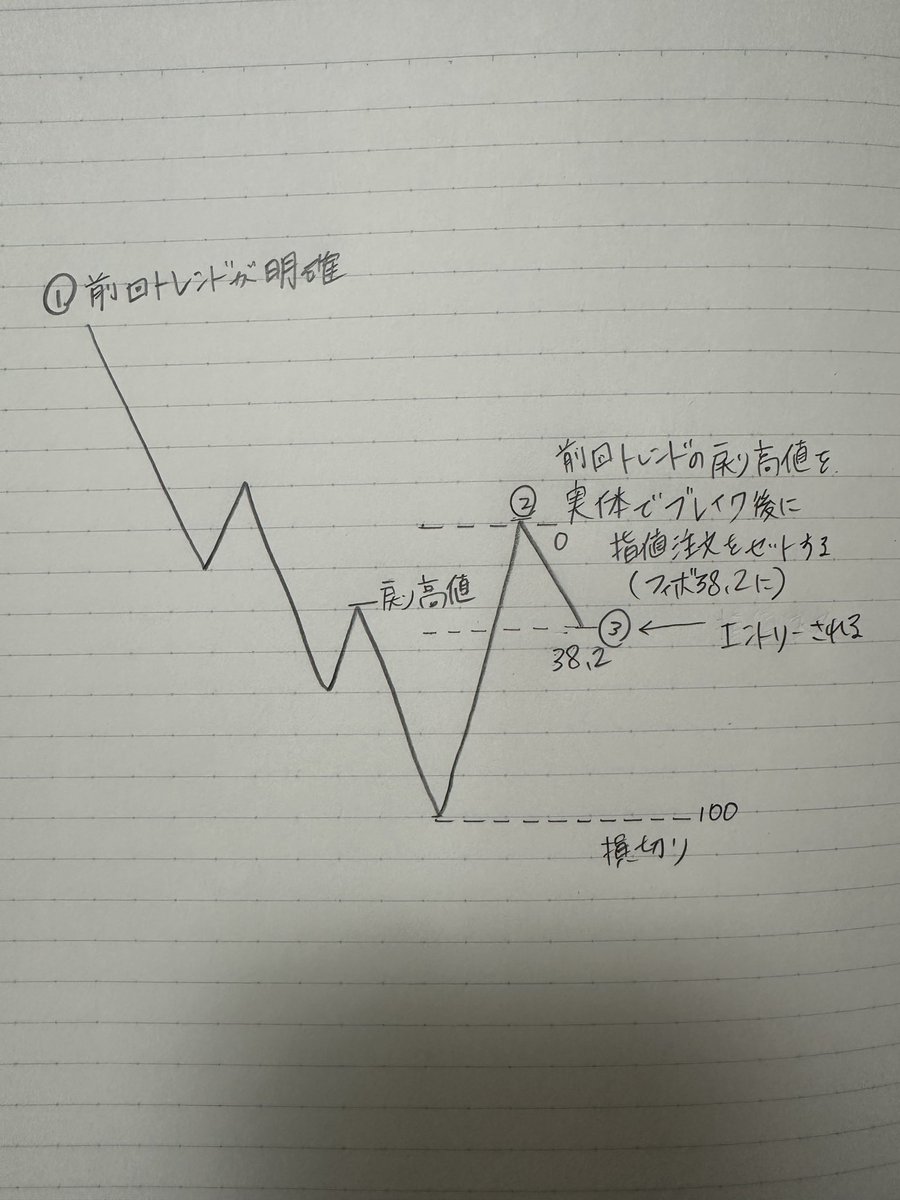 ① 前回トレンドが明確
前回トレンドの戻り高値を
② 実体でブレイク後に
0 指値注文をセットする
(フィボ38.2に)
戻り高値
③ ← エントリーされる
38.2
100
損切り